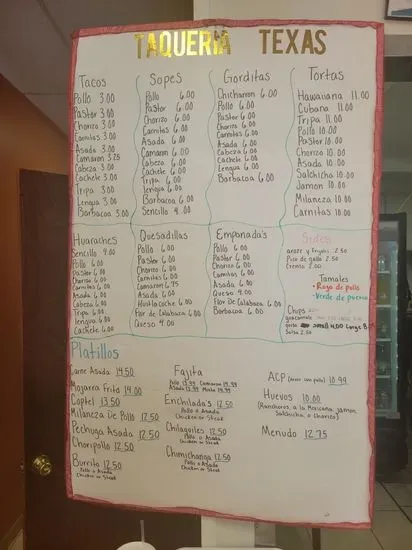 TAQUERIA TEXAS
Tacos
Pollo 3.00
Pastor 3.00
Chorizo 3.00
Carnitas 3.00
Asada 3.00
Camaron 3.25
Cabeza 3.00
Cachete 3.00
Tripa 3.00
Lengua 3.00
Barbacoa 3.00
Sopes
Pollo 6.00
Pastor 6.00
Chorizo 6.00
Carnitas 6.00
Asada 6.00
Camaron 6.00
Cabeza 6.00
Cachete 6.00
Tripa 6.00
lengua 6.00
Barbacoa 6.00
Sencillo 4.00
Gorditas
Chicharron 6.00
Pollo 6.00
Pastor 6.00
Chorizo 6.00
Carnitas 6.00
Asada 6.00
Cabeza 6.00
Cachete 6.00
Lengua 6.00
Barbacoa 6.00
Tortas
Hawaiiana 11.00
Cubana 11.00
Tripa 11.00
Pollo 10.00
Pastor 10.00
Chorizo 10.00
Asada 10.00
Salchicha 10.00
Jamon 10.00
Milaneza 10.00
Carnitas 10.00
Huaraches
Sencillo 4.00
Pollo 6.00
Pastor 6.00
Chorizo 6.00
Carnitas 6.00
Asada 6.00
Cabeza 6.00
Tripa 6.00
lengua 6.00
Cachete 6.00
Quesadillas
Pollo 6.00
Pastor 6.00
Chorizo 6.00
Carnitas 6.00
Camaron 6.75
Asada 6.00
Huitlacoche 6.00
Flor de Calabaza 6.00
Queso 4.00
Empanada's
Pollo 6.00
Pastor 6.00
Chorizo 6.00
Carnitas 6.00
Asada 6.00
Queso 4.00
Flor De Calabaza 6.00
Barbacoa 6.00
Sides
arroz y frijoles 2.50
Pico de gallo 2.50
Crema 2.00
Tamales
• Rojo de pollo
• Verde de puerco
Chips
guacamole
small 4.00 Large 8
Salsa 2.50
Platillos
Carne Asada 14.50
Mojarra Frita 14.00
Coptel 13.50
Milaneza De Pollo 12.50
Pechuga Asada 12.50
Choripollo 12.50
Burrito 12.50
Pollo o Asada
Chicken or Steak
Fajita
Pollo 13.99 Camaron 14.99
Asada 13.99 Mixta 14.99
Enchilada's 12.50
Pollo o Asada
Chicken or Steak
Chilaquiles 12.50
Pollo o Asada
Chicken or Steak
Chimichanga 12.50
Pollo o Asada
Chicken or Steak
ACP (Arroz con pollo) 10.99
Huevos 10.00
(Rancheros, a la Mexicana, jamon,
Salchicha, o Chorizo)
Menudo 12.75